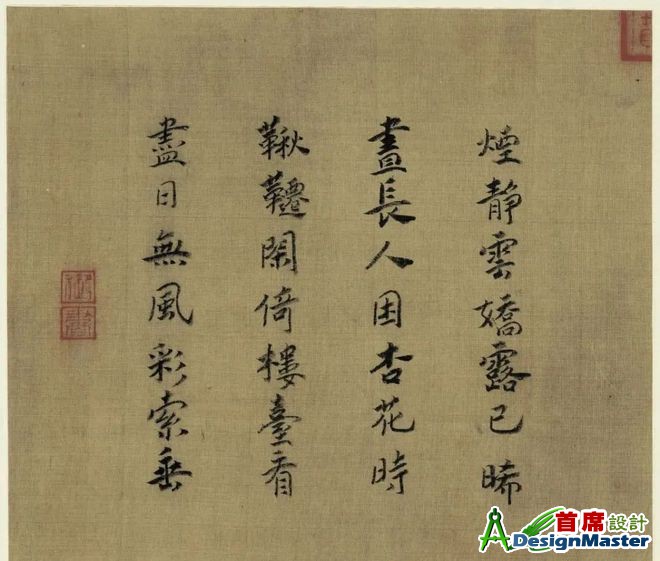 煙靜雲嬌露已晞
晝長人困杏花時
鞦韆閑倚樓臺看
盡日無風彩索垂
首席設計
DesignMaster